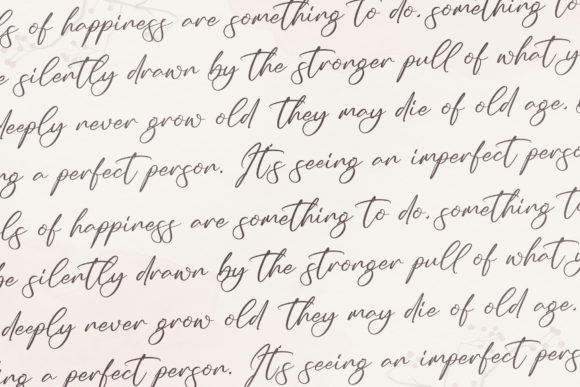 ls of happiness are something to do. something to
e silently drawn by the stronger pull of what y
deeply never grow old they may die of old age.
ng a perfect person. It's seeing an imperfect perso
ls of happiness are something to do. something to
be silently drawn by the stronger pull of what y
deeply never grow old they may die of old age.
ing a perfect person. It's seeing an imperfect perso